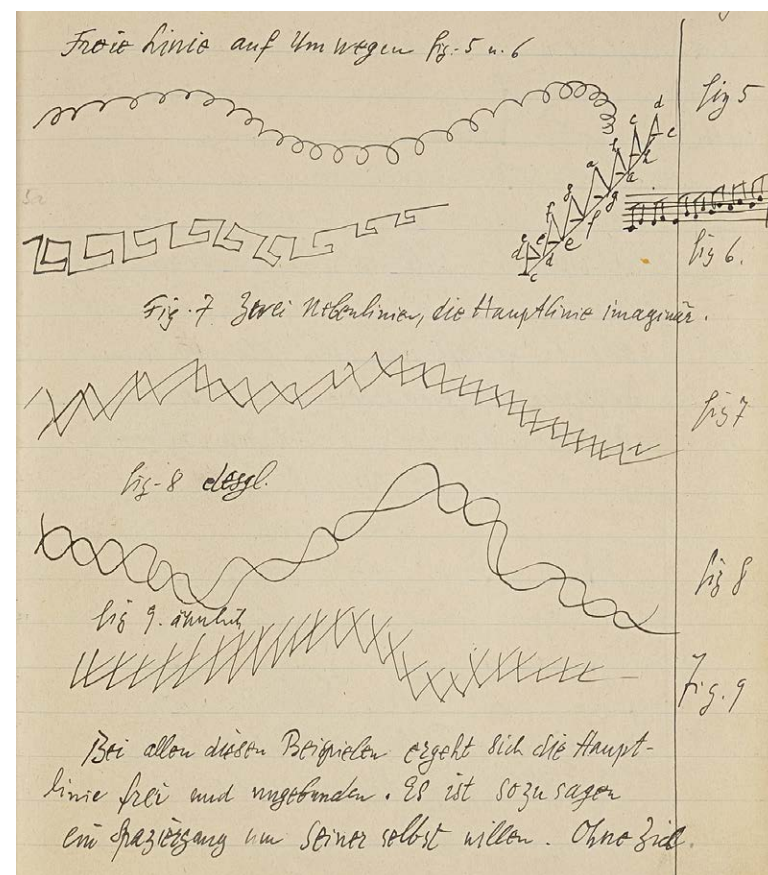 Freie Linie auf Umwegen fig. 5 u. 6
fig 5
d
c e
b h
a a
g g
f f
e e
d d
c
fig 6.
Fig. 7 Zwei Nebenlinien, die Hauptlinie imaginär.
fig 7
fig. 8 desgl.
fig 8
fig 9. ähnlich
Fig. 9
Bei allen diesen Beispielen ergeht sich die Haupt-
linie frei und ungebunden. Es ist sozusagen
ein Spaziergang um seiner selbst willen. Ohne Ziel.